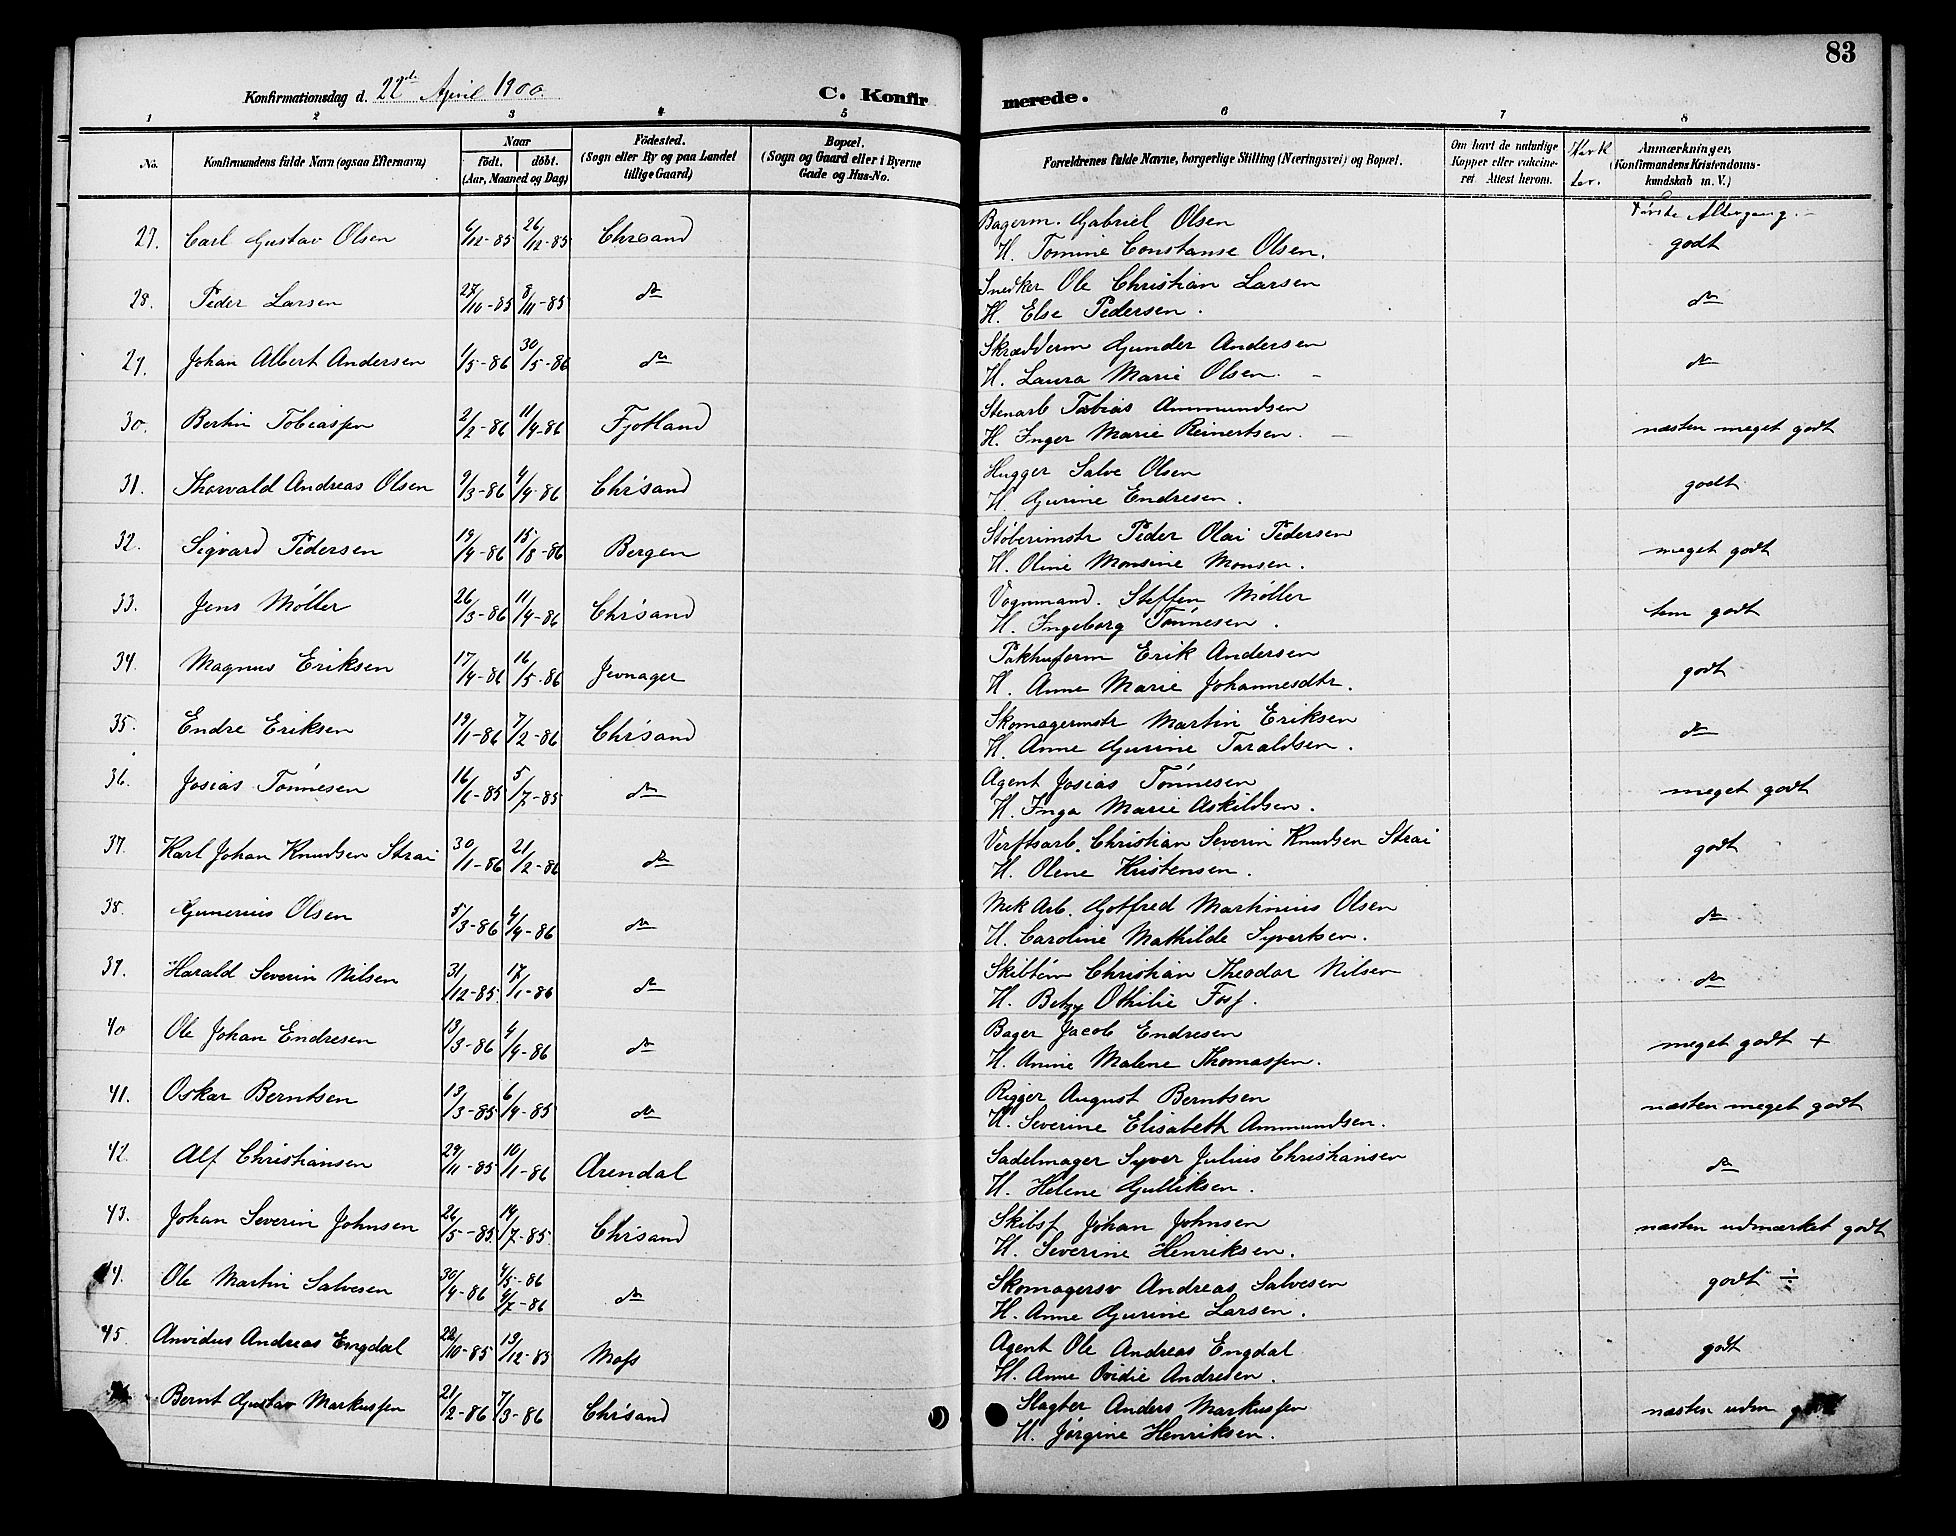 83
Konfirmationsdag d. 22de April 1900.
C. Konfirmerede.
1 2 3 4 5 6 7 8
No. Konfirmandens fulde Navn (ogsaa Efternavn) Naar födt. döbt. (Aar, Maaned og Dag) Födested. (Sogn eller By og paa Landet tillige Gaard) Bopæl. (Sogn og Gaard eller i Byerne Gade og Hus-No. Forældrenes fulde Navne, borgerlige Stilling (Næringsvei) og Bopæl. Om havt de naturlige Kopper eller vakcineret. Attest herom. Anmærkninger, (Konfirmandens Kristendomskundskab m. V.)
Første Altergang.
27. Carl Gustav Olsen 6/12-85 26/12-85 Chrsand Bagerm. Gabriel Olsen godt
H. Tomine Constanse Olsen.
28. Peder Larsen 27/10-85 8/11-85 do Snedker Ole Christian Larsen do
H. Else Pedersen.
29. Johan Albert Andersen 1/5-86 30/5-86 do Skrædderm Gunder Andersen do
H. Laura Marie Olsen.
30. Bertin Tobiassen 2/2-86 11/4-86 Fjotland Stenarb Tobias Ammundsen næsten meget godt
H. Inger Marie Reinertsen.
31. Thorvald Andreas Olsen 9/3-86 4/4-86 Chrsand Hugger Salve Olsen godt
H. Gurine Endresen.
32. Sigvard Pedersen 19/4-86 15/8-86 Bergen Støberimstr Peder Olai Pedersen meget godt
H. Oline Monsine Monsen.
33. Jens Møller 26/3-86 11/4-86 Chrsand Vognmand. Steffen Møller tem godt
H. Ingeborg Tønnesen.
34. Magnus Eriksen 17/4-86 16/5-86 Jevnager Pakhusform Erik Andersen godt
H. Anne Marie Johannesdtr.
35. Endre Eriksen 19/1-86 7/2-86 Chrsand Skomagermstr Martin Eriksen do
H. Anne Gurine Taraldsen.
36. Josias Tønnesen 16/6-85 5/7-85 do Agent Josias Tønnesen meget godt
H. Inga Marie Askildsen.
37. Karl Johan Knudsen Strai 30/1-86 21/2-86 do Verftsarb. Christian Severin Knudsen Strai godt
H. Olene Kristensen.
38. Gunerius Olsen 5/3-86 4/4-86 do Mek Arb. Gotfred Martinius Olsen do
H. Caroline Mathilde Syvertsen.
39. Harald Severin Nilsen 31/12-85. 17/1-86 do Skibtøm Christian Theodor Nilsen do
H. Betzy Othilie Foss.
40 Ole Johan Endresen 13/3-86 4/4-86 do Bager Jacob Endresen meget godt +
H. Anine Malene Thomassen.
41. Oskar Berntsen 13/3-85 6/4-85 do Rigger August Berntsen næsten meget godt
H. Severine Elisabeth Ammundsen.
42. Alf Christiansen 29/11-85 10/1-86 Arendal Sadelmager Syver Julius Christiansen do
H. Helene Gulliksen.
43. Johan Severin Johnsen 26/5-85. 14/7-85. Chrsand Skibsf Johan Johnsen næsten udmærket godt
H. Severine Henriksen.
44. Ole Martin Salvesen 30/4-86 4/5-86 4/7-86 do Skomagersv Andreas Salvesen godt ÷
H. Anne Gurine Larsen.
45. Anvidus Andreas Engdal 22/10-85 13/12-85 Moss Agent Ole Andreas Engdal godt
H. Anne Ovidie Andresen.
46 Bernt Gustav Markussen 21/2-86 7/3-86 Chrsand Slagter Anders Markussen næsten udm godt
H. Jørgine Henriksen.